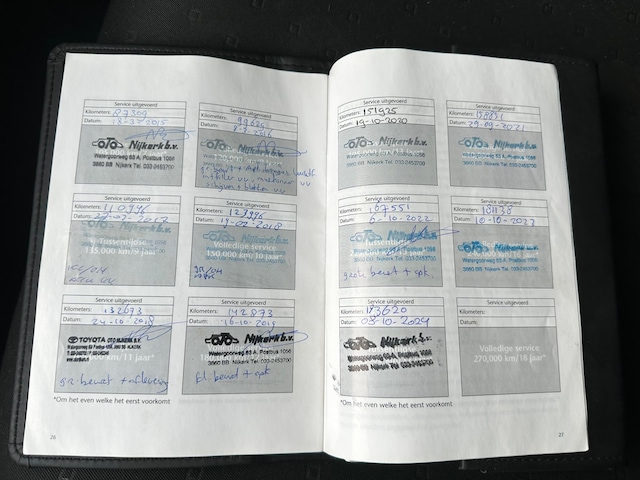 Service uitgevoerd
Kilometers: 87309
Datum:
OTO Nijkerk b.v.
Watergoorweg 63 A, Postbus 1056
3860 BB Nijkerk Tel. 033-2453700
Service uitgevoerd
Kilometers: 99626
Datum:
OTO Nijkerk b.v.
Watergoorweg 63 A, Postbus 1056
3860 BB Nijkerk Tel. 033-2453700
Service uitgevoerd
Kilometers:
Datum:
OTO Nijkerk b.v.
Tussentijdse
135.000 km/9 jaar*
Service uitgevoerd
Kilometers: 127996
Datum: 19-02-2018
OTO Nijkerk b.v.
Volledige service
150.000 km/10 jaar*
gr/OH
Service uitgevoerd
Kilometers: 132673
Datum: 24-10-2018
TOYOTA OTO NIJKERK B.V.
km/11 jaar*
gr beurt + aflevering
Service uitgevoerd
Kilometers: 142873
Datum: 16-10-2019
OTO Nijkerk b.v.
Watergoorweg 63 A, Postbus 1056
3860 BB Nijkerk Tel. 033-2453700
kl beurt + apk
*Om het even welke het eerst voorkomt
26
Service uitgevoerd
Kilometers: 151925
Datum: 19-10-2020
OTO Nijkerk b.v.
Watergoorweg 63 A, Postbus 1056
3860 BB Nijkerk Tel. 033-2453700
Service uitgevoerd
Kilometers: 158851
Datum: 29-09-2021
OTO Nijkerk b.v.
Watergoorweg 63 A, Postbus 1056
3860 BB Nijkerk Tel. 033-2453700
Service uitgevoerd
Kilometers: 167551
Datum: 6-10-2022
Tussentijdse
OTO Nijkerk b.v.
beurt + apk
Service uitgevoerd
Kilometers:
Datum: 10-10-2023
OTO Nijkerk b.v.
Watergoorweg 63 A, Postbus 1056
3860 BB Nijkerk Tel. 033-2453700
Service uitgevoerd
Kilometers: 183620
Datum: 03-10-2024
OTO Nijkerk b.v.
Watergoorweg 63 A, Postbus 1056
3860 BB Nijkerk Tel 033-2453700
Service uitgevoerd
Kilometers:
Datum:
Volledige service
270.000 km/18 jaar*
*Om het even welke het eerst voorkomt
27